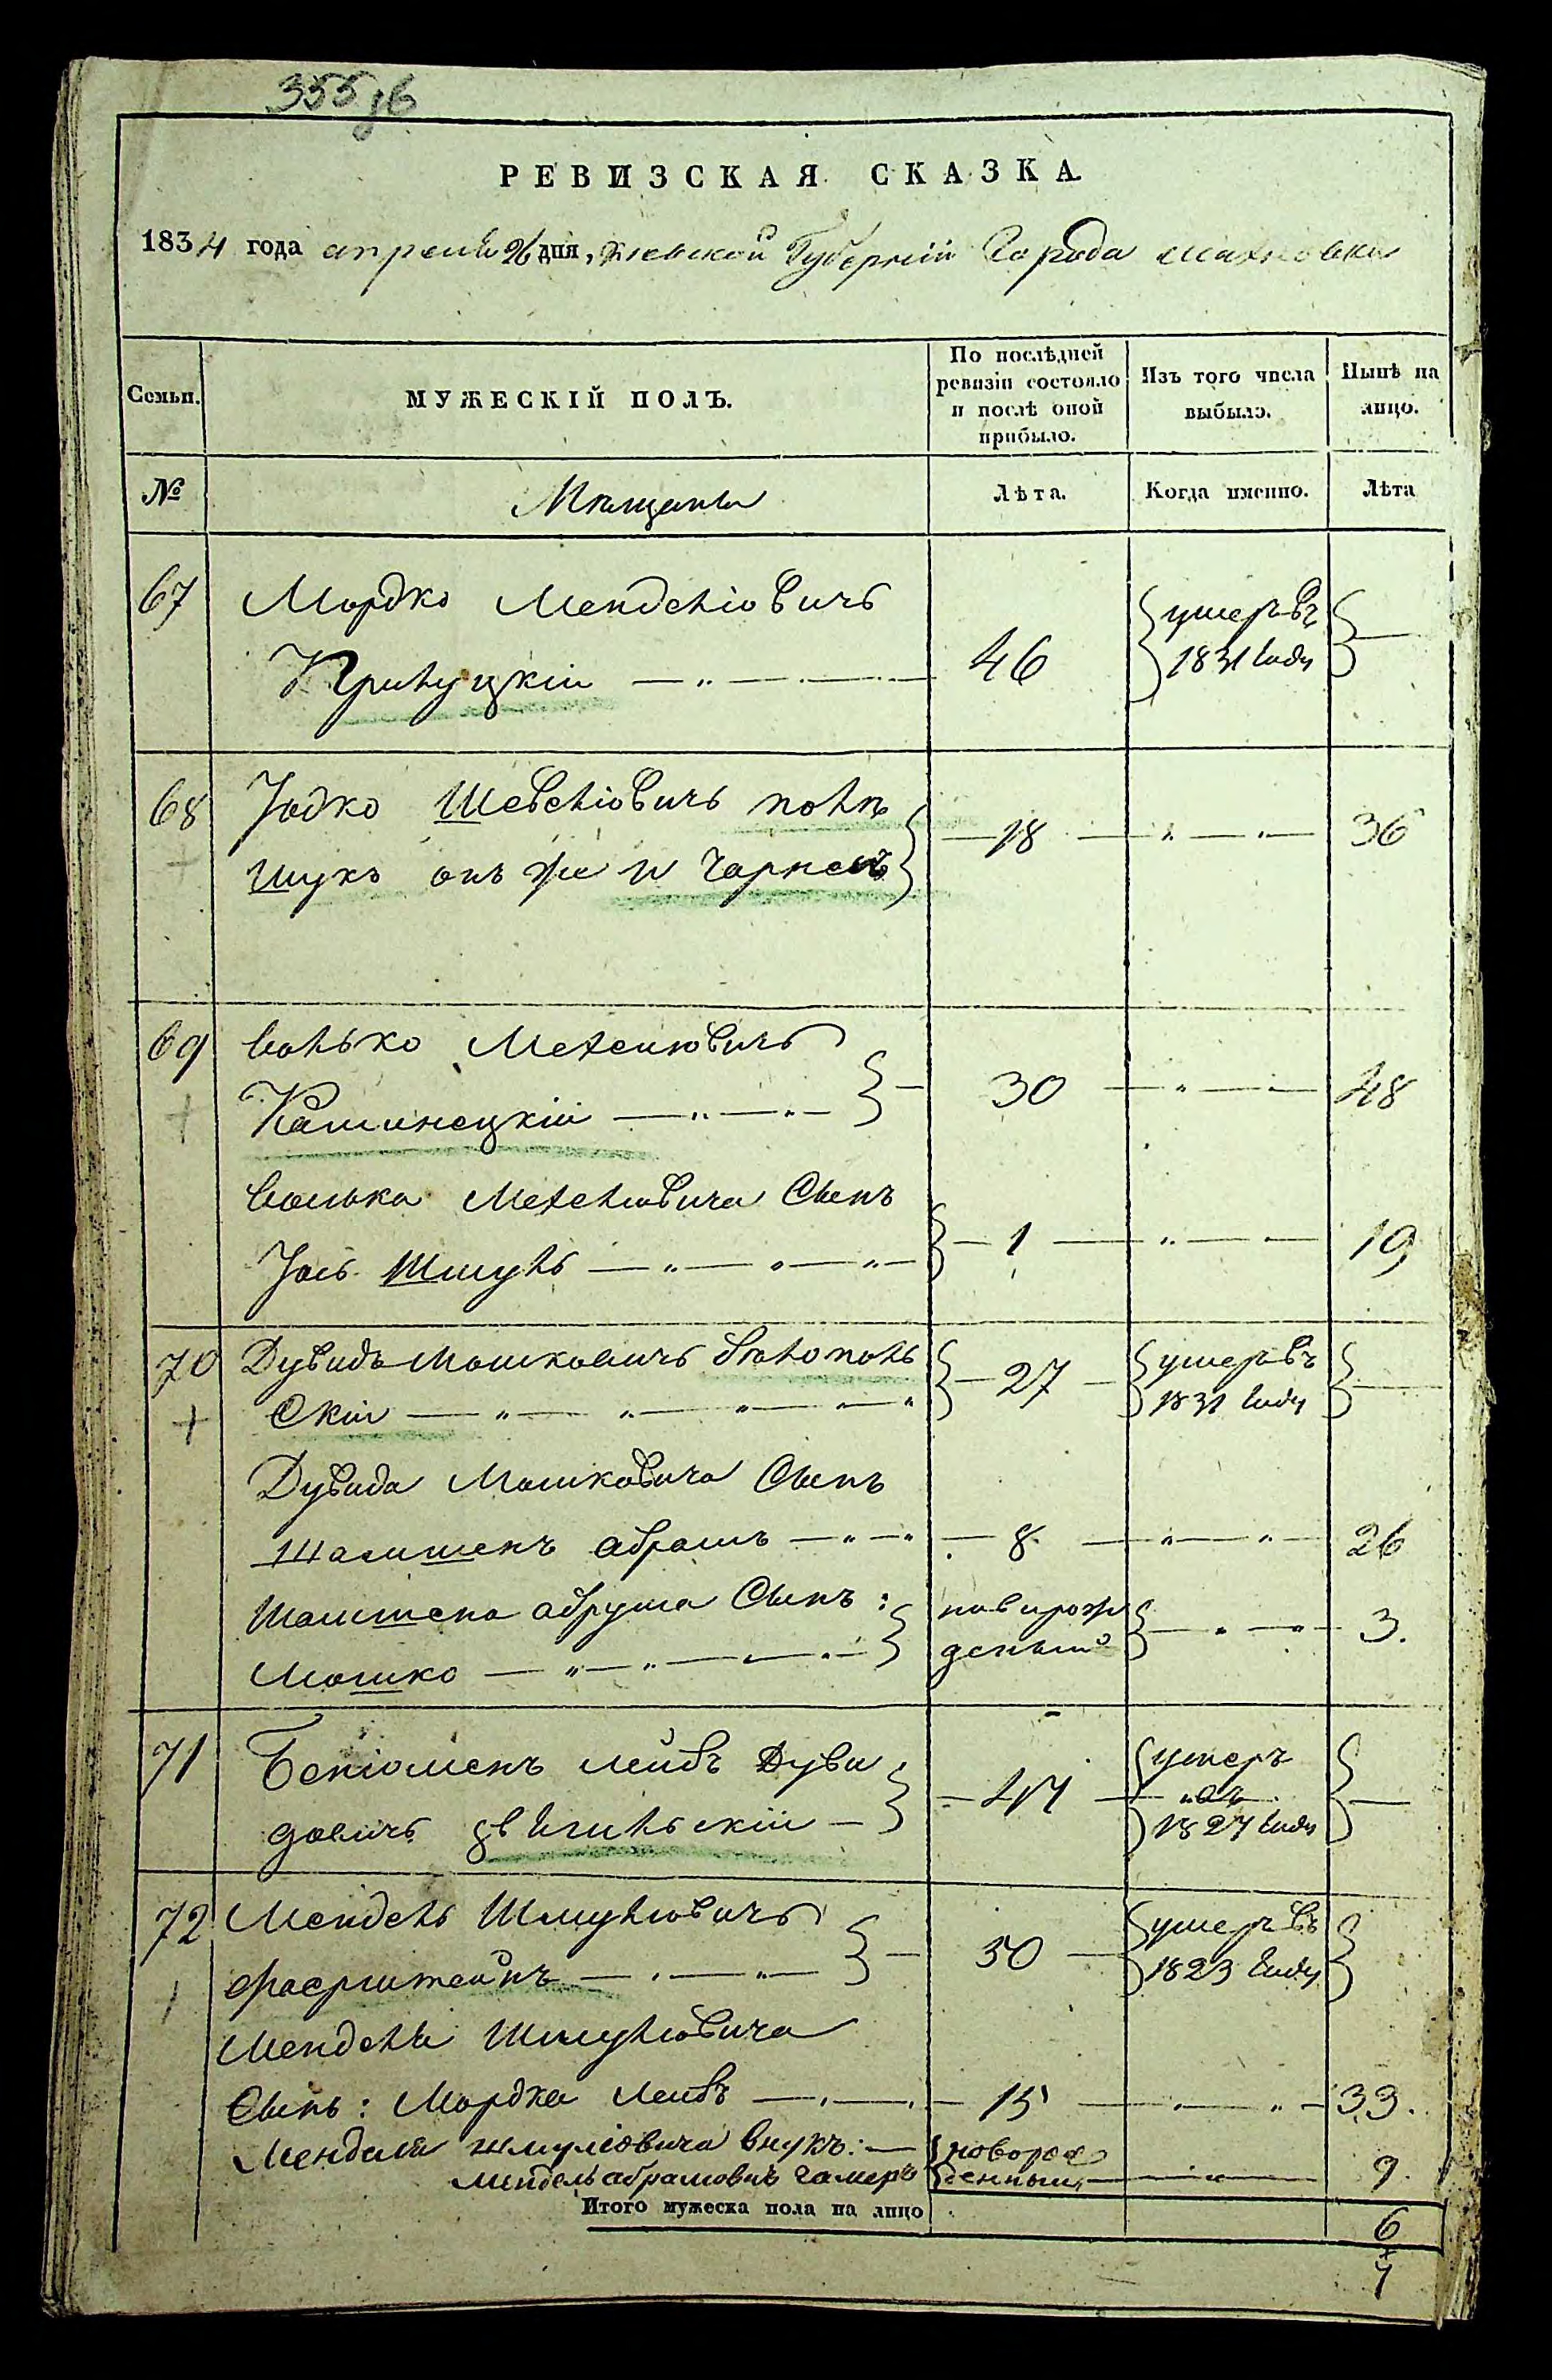 355 об
РЕВИЗСКАЯ СКАЗКА
1834 года апреля 26 дня, Киевской Губерніи Города Махновки
Семьи. МУЖЕСКІЙ ПОЛЪ. По послѣдней ревизіи состояло и послѣ оной прибыло. Изъ того числа выбыло. Нынѣ на лицо.
№ Мѣщане Лѣта. Когда именно. Лѣта
67 Мордко Менделіовичъ
Прилуцкій — 46 умеръ въ 1831 году —
68 Іодко Шевеліовичъ полѣ
шукъ онъ же и — 18 — 36
69 Волько Мехелювичъ
Каминецкій — 30 — 48
Волька Мехелювича Сынъ
Іось Шмуль — 1 — 19
70 Дувидъ Мошковичъ бѣлополь
Скій — 27 — умеръ въ 1831 году —
Дувида Мошковича Сынъ
абрамъ — 8 — 26
Сынъ:
Мошко — новорож
деный — 3.
71 Беніоменъ Лейбъ Дуви
довичъ звягильскій — 47 — умеръ
въ
1827 году —
72 Мендель Шмулювичъ
Фаерштейнъ — 50 — умеръ въ
1823 году
Менделя Шмулювича
Сынъ: Мордка Лейбъ — 15 — 33.
Менделя шмулiовича внукъ: — новорож
Мендель абрамовичъ денный — 9.
Итого мужеска пола на лицо 6
7